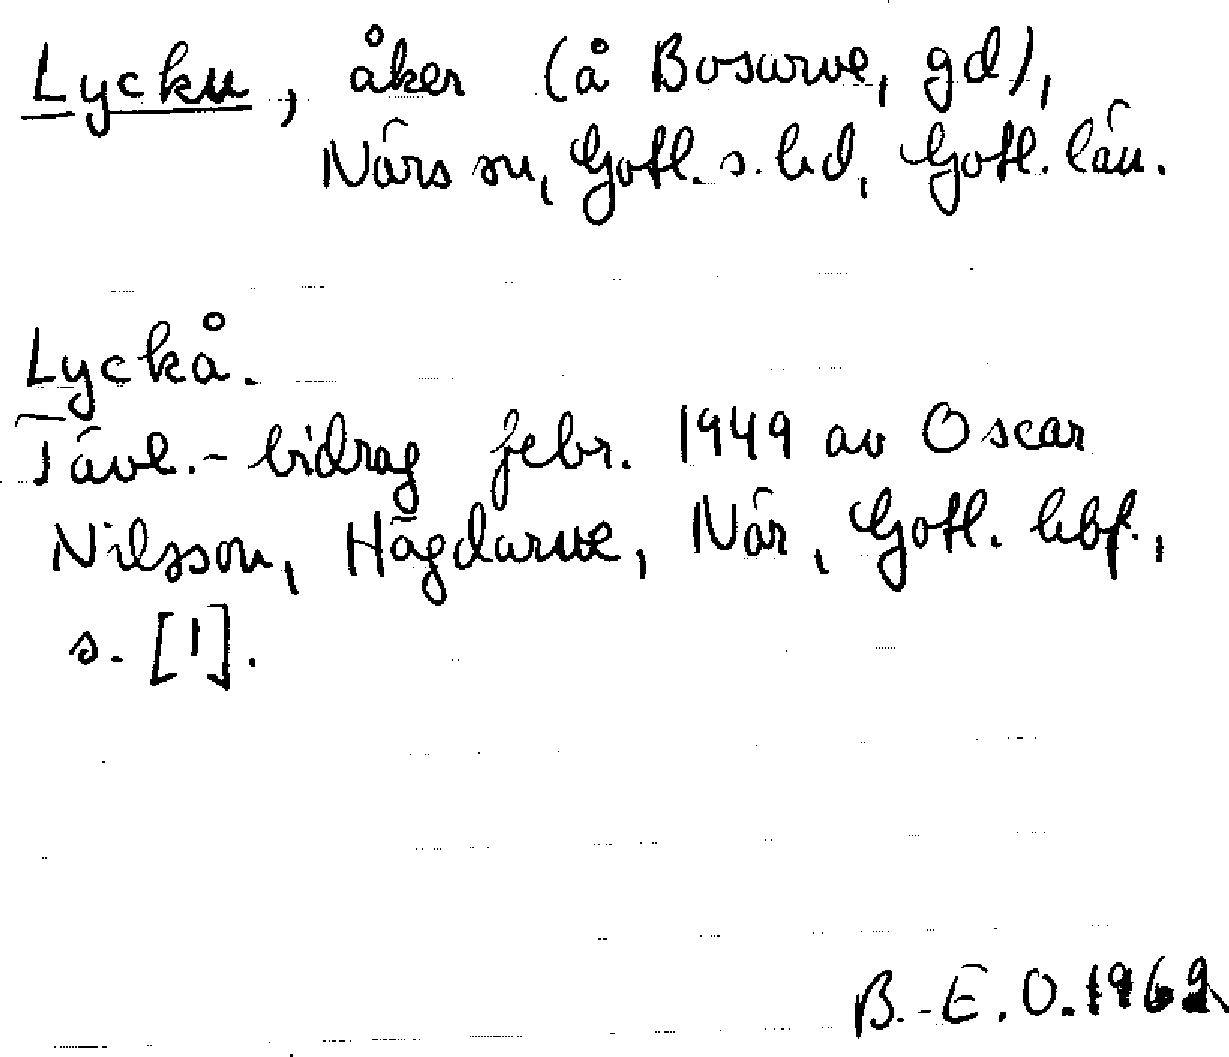 Lycku, åker (å Bosarve, gd),
Närs sn, Gotl. s. hd, Gotl. län.
Lyckå.
Tävl.-bidrag febr. 1949 av Oscar
Nilsson, Hägdarve, När, Gotl. hbf.,
s. [1].
B.-E. O. 1962